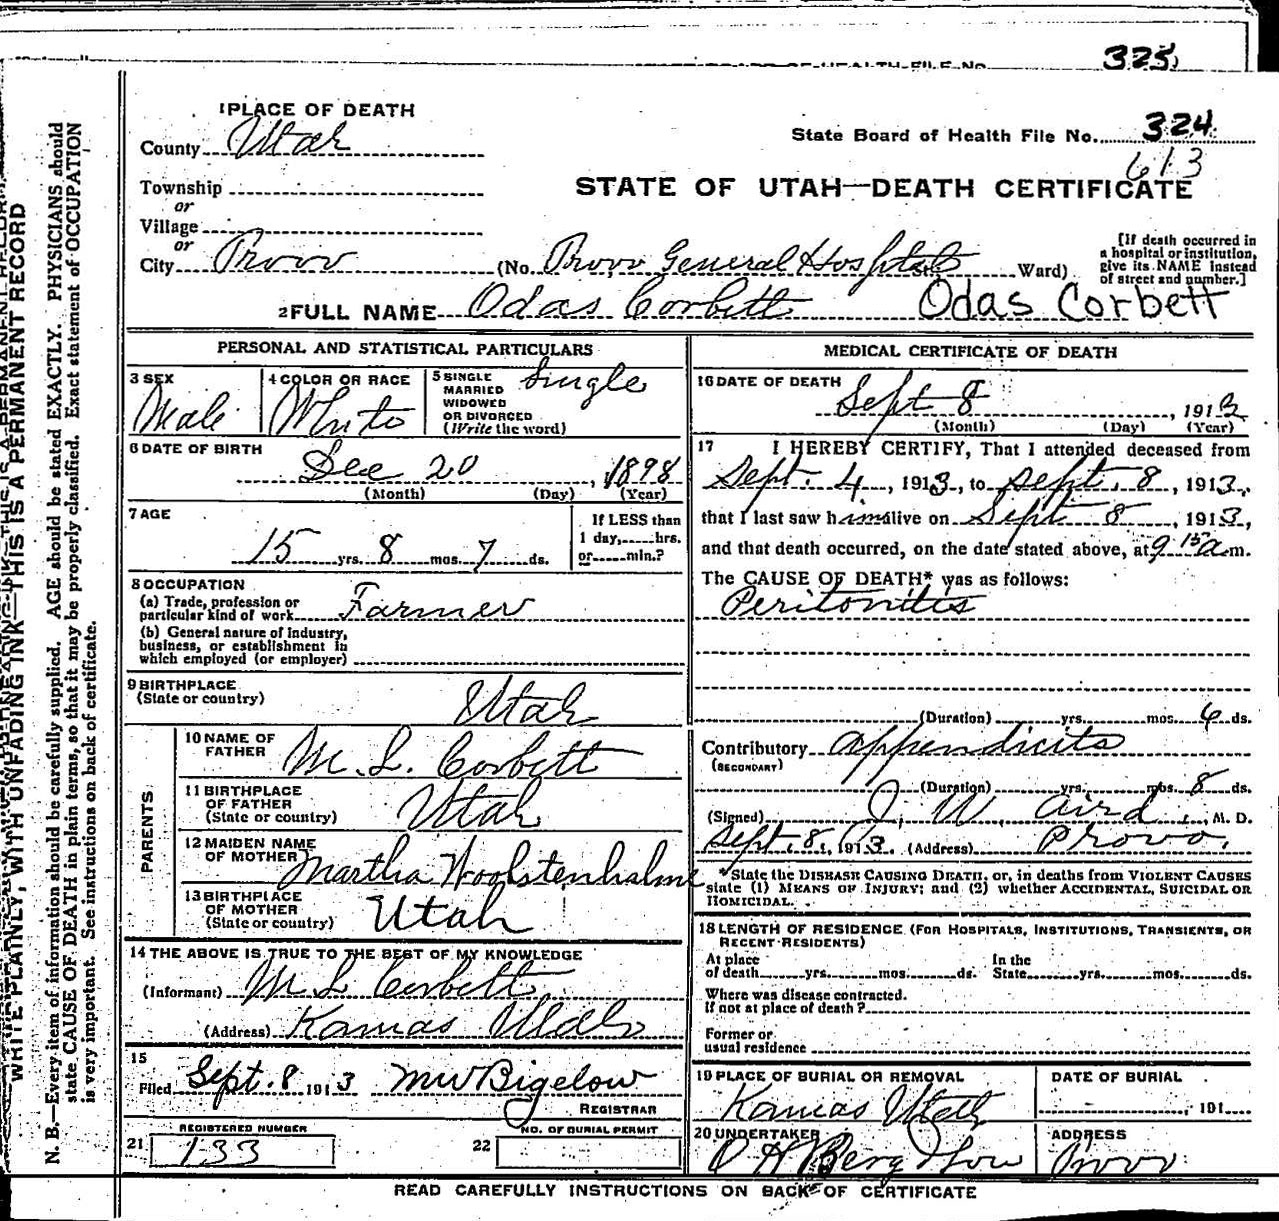 325
BOARD OF HEALTH FILE No.
1 PLACE OF DEATH
County Utah
State Board of Health File No. 324
613
Township
or
STATE OF UTAH—DEATH CERTIFICATE
Village
or
City Provo (No. Provo General Hospital Ward)
[If death occurred in
a hospital or institution,
give its NAME instead
of street and number.]
2 FULL NAME Odas Corbett Odas Corbett
PERSONAL AND STATISTICAL PARTICULARS
3 SEX
Male
4 COLOR OR RACE
White
5 SINGLE
MARRIED
WIDOWED
OR DIVORCED
(Write the word)
Single
6 DATE OF BIRTH
Dec 20, 1898
(Month) (Day) (Year)
7 AGE
15 yrs. 8 mos. 7 ds.
If LESS than
1 day,.....hrs.
or.....min.?
8 OCCUPATION
(a) Trade, profession or
particular kind of work Farmer
(b) General nature of industry,
business, or establishment in
which employed (or employer)
9 BIRTHPLACE
(State or country) Utah
PARENTS
10 NAME OF
FATHER M. L. Corbett
11 BIRTHPLACE
OF FATHER
(State or country) Utah
12 MAIDEN NAME
OF MOTHER Martha Woolstenhalme
13 BIRTHPLACE
OF MOTHER
(State or country) Utah
14 THE ABOVE IS TRUE TO THE BEST OF MY KNOWLEDGE
(Informant) M L Corbett
(Address) Kamas Utah
15
Filed Sept. 8 1913 MW Bigelow
REGISTRAR
21 REGISTERED NUMBER
133
22 NO. OF BURIAL PERMIT
MEDICAL CERTIFICATE OF DEATH
16 DATE OF DEATH
Sept 8, 1913
(Month) (Day) (Year)
17 I HEREBY CERTIFY, That I attended deceased from
Sept. 4, 1913, to Sept. 8, 1913,
that I last saw him alive on Sept 8, 1913,
and that death occurred, on the date stated above, at 9 15 a m.
The CAUSE OF DEATH* was as follows:
Peritonitis
(Duration) yrs. mos. 6 ds.
Contributory appendicits
(SECONDARY)
(Duration) yrs. mos. 8 ds.
(Signed) J. W. Aird, M. D.
Sept. 8, 1913. (Address) Provo.
*State the DISEASE CAUSING DEATH, or, in deaths from VIOLENT CAUSES
state (1) MEANS OF INJURY; and (2) whether ACCIDENTAL, SUICIDAL OR
HOMICIDAL.
18 LENGTH OF RESIDENCE (FOR HOSPITALS, INSTITUTIONS, TRANSIENTS, OR
RECENT RESIDENTS)
At place
of death yrs. mos. ds.
In the
State yrs. mos. ds.
Where was disease contracted.
If not at place of death?
Former or
usual residence
19 PLACE OF BURIAL OR REMOVAL
Kamas Utah
DATE OF BURIAL
, 191
20 UNDERTAKER
ADDRESS
Provo
READ CAREFULLY INSTRUCTIONS ON BACK OF CERTIFICATE
WRITE PLAINLY, WITH UNFADING INK—THIS IS A PERMANENT RECORD
N. B.—Every item of information should be carefully supplied. AGE should be stated EXACTLY. PHYSICIANS should
state CAUSE OF DEATH in plain terms, so that it may be properly classified. Exact statement of OCCUPATION
is very important. See instructions on back of certificate.